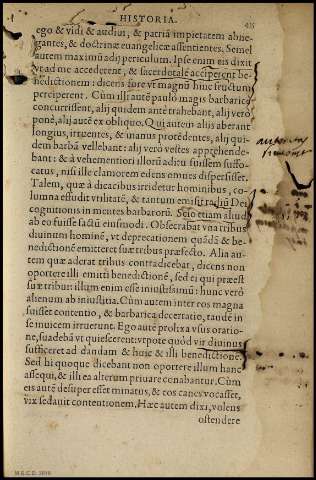 HISTORIA.
ego & vidi & audiui, & patriã impietatem abne-
gantes, & doctrinæ euangelicæ assentientes. Semel
autem maximũ adij periculum. Ipse enim eis dixit
vt ad me accederent, & sacerdotalẽ acciperent be-
nedictionem: dicens fore vt magnũ hinc fructum
perciperent. Cùm illi autẽ paulò magis barbaricè
concurrissent, alij quidem antè trahebant, alij verò
ponè, alij autẽ ex obliquo. Qui autem aliis aberant
longius, irruentes, & manus protẽdentes, alij qui-
dem barbã vellebant: alij verò vestes apprehende-
bant: & à vehementiori illorũ aditu fuissem suffo-
catus, nisi ille clamorem edens omnes dispersisset.
Talem, quæ à dicacibus irridetur hominibus, co-
lumna effudit vtilitatẽ, & tantum emisit radiũ Dei
cognitionis in mentes barbarorũ. Scio etiam aliud
ab eo fuisse factũ eiusmodi. Obsecrabat vna tribus
diuinum hominẽ, vt deprecationem quãdã & be-
nedictionẽ emitteret suæ tribus præfecto. Alia au-
tem quæ aderat tribus contradicebat, dicens non
oportere illi emitti benedictionẽ, sed ei qui præest
suæ tribui: illum enim esse iniustissimũ: hunc verò
alienum ab iniustitia. Cùm autem inter eos magna
fuisset contentio, & barbarica decertatio, tandẽ in
se inuicem irruerunt. Ego autẽ prolixa vsus oratio-
ne, suadebã vt quiescerent: vtpote quòd vir diuinus
sufficeret ad dandam & huic & illi benedictionẽ.
Sed hi quoque dicebant non oportere illum hanc
assequi, & illi ea alterum priuare conabantur. Cùm
eis autẽ desuper esset minatus, & eos canes vocasset,
vix sedauit contentionem. Hæc autem dixi, volens
ostendere
M.E.C.D. 2016